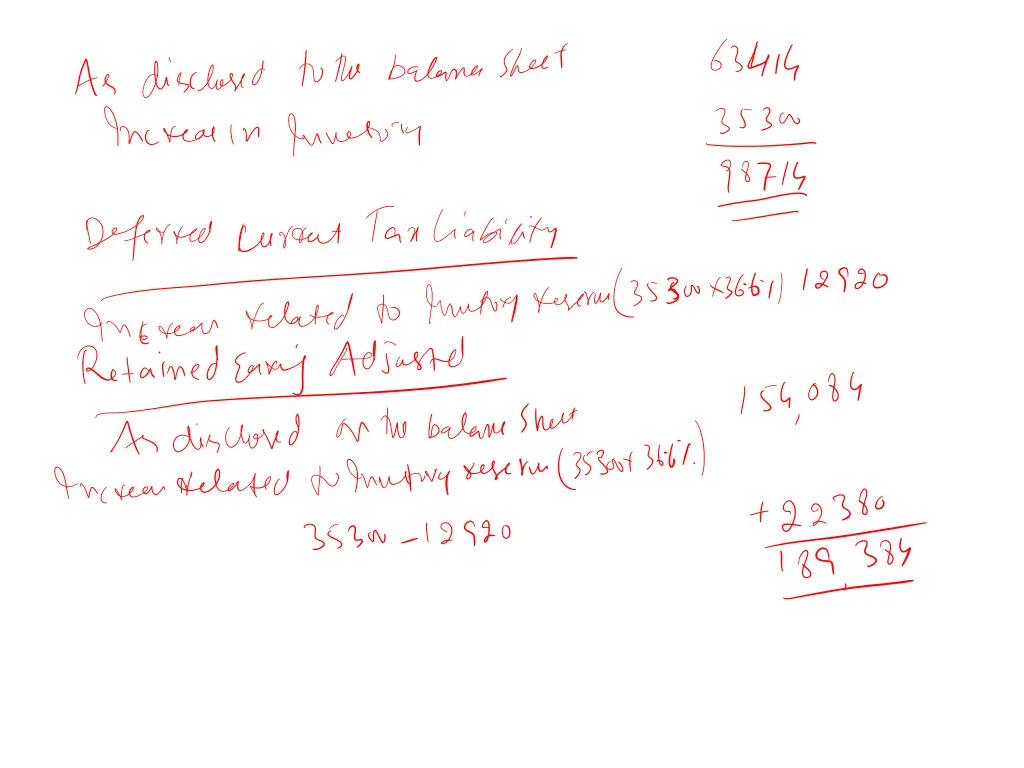 As disclosed to the balance sheet 63414
Increase in Inventory 35300
98714
Deferred current Tax Liability
Increase related to Inventory reserve (35300 x 36.6%) 12920
Retained Earing Adjusted
As disclosed on the balance sheet 154,084
Increase related to Inventory reserve (35300x 36.6%)
35300 - 12920 + 22380
189,384